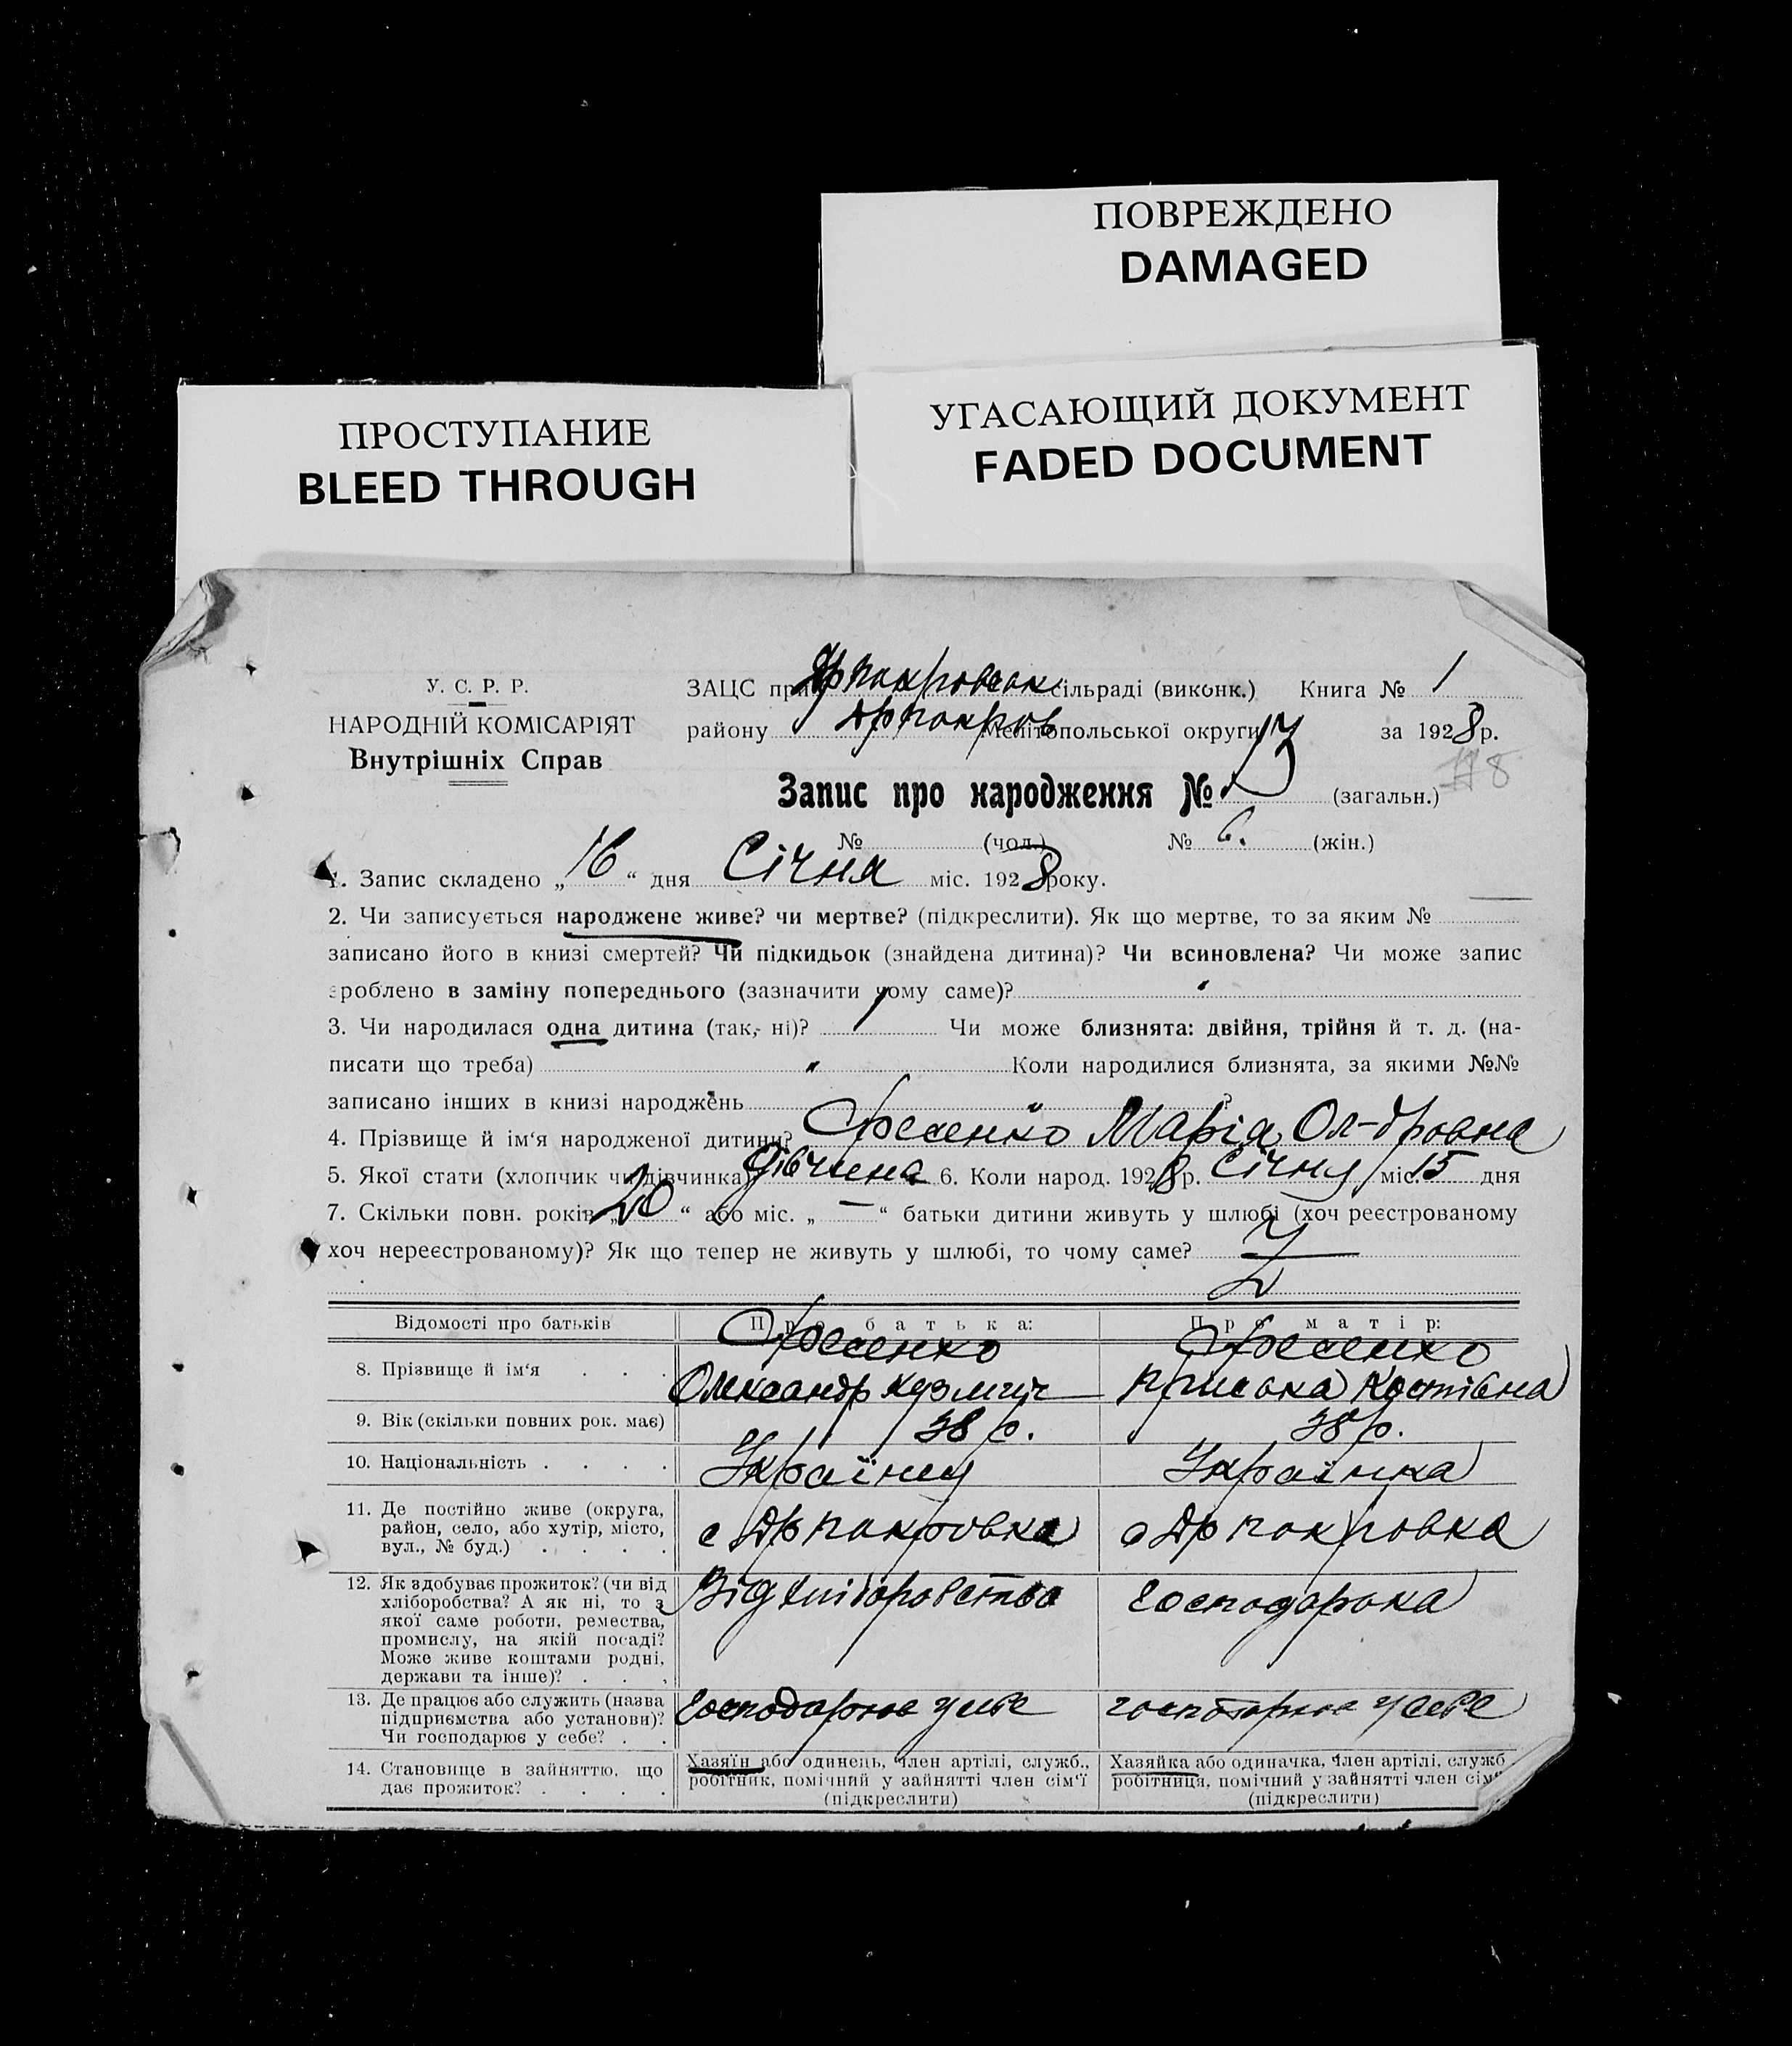 ПОВРЕЖДЕНО
DAMAGED
ПРОСТУПАНИЕ
BLEED THROUGH
УГАСАЮЩИЙ ДОКУМЕНТ
FADED DOCUMENT
У. С. Р. Р.
НАРОДНІЙ КОМІСАРІЯТ
Внутрішніх Справ
ЗАЦС при сільраді (виконк.) Книга № 1
району Мелітопольської округи за 1928 р.
Запис про народження № 13 (загальн.)
№ (чол.) № 6. (жін.)
1. Запис складено „16“ дня Січня міс. 1928 року.
2. Чи записується народжене живе? чи мертве? (підкреслити). Як що мертве, то за яким №
записано його в книзі смертей? Чи підкидьок (знайдена дитина)? Чи всиновлена? Чи може запис
зроблено в заміну попереднього (зазначити чому саме)?
3. Чи народилася одна дитина (так, ні)? Чи може близнята: двійня, трійня й т. д. (на-
писати що треба) Коли народилися близнята, за якими №№
записано інших в книзі народжень ?
4. Прізвище й ім‘я народженої дитини? Марія Ол-дровна
5. Якої стати (хлопчик чи дівчинка) Дівчина 6. Коли народ. 1928 р. Січня міс. 15 дня
7. Скільки повн. років „20“ або міс. „—“ батьки дитини живуть у шлюбі (хоч реєстрованому
хоч нереєстрованому)? Як що тепер не живуть у шлюбі, то чому саме?
Відомості про батьків Про батька: Про матір:
8. Прізвище й ім‘я . . .
Олександр Кузмич Приська Костівна
9. Вік (скільки повних рок. має) 38 р. 38 р.
10. Національність . . . . Українец Українка
11. Де постійно живе (округа,
район, село, або хутір, місто,
вул., № буд.) . . . .
с Др покровка с Др покровка
12. Як здобуває прожиток? (чи від
хліборобства? А як ні, то з
якої саме роботи, ремества,
промислу, на якій посаді?
Може живе коштами родні,
держави та інше)? . . .
Від хліборобства господарока
13. Де працює або служить (назва
підприємства або установи)?
Чи господарює у себе? . .
господарює у себе господарює у себе
14. Становище в зайняттю, що
дає прожиток? . . . .
Хазяїн або одинець, член артілі, служб.,
робітник, помічний у зайнятті член сім‘ї
(підкреслити)
Хазяйка або одиначка, член артілі, служб.
робітниця, помічний у зайнятті член сім‘ї
(підкреслити)